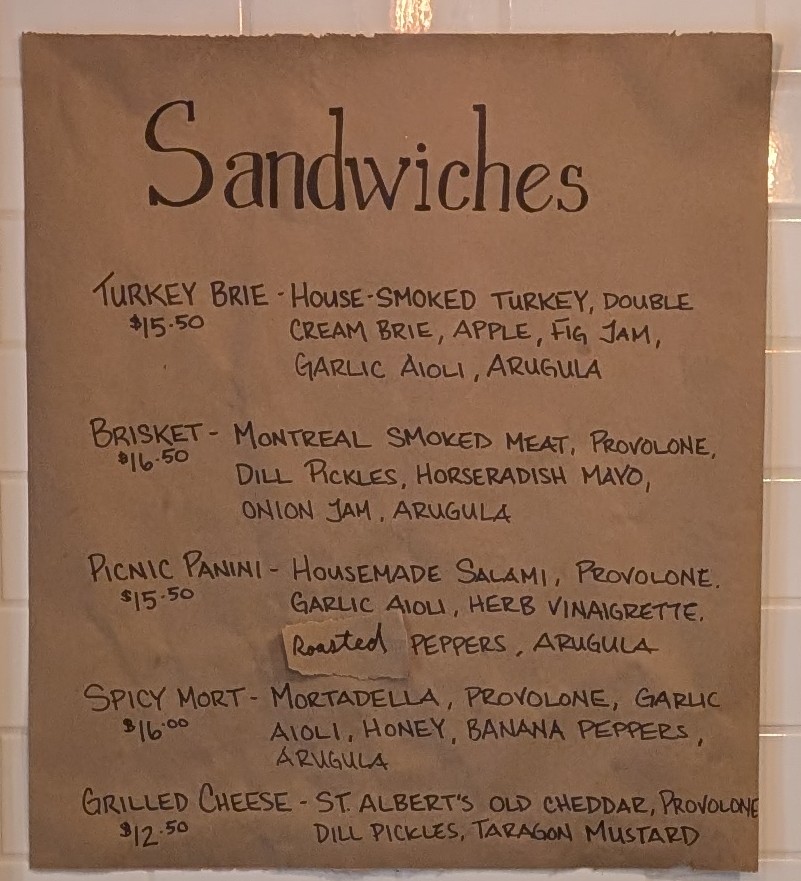 Sandwiches
TURKEY BRIE - HOUSE-SMOKED TURKEY, DOUBLE
$15.50 CREAM BRIE, APPLE, FIG JAM,
GARLIC AIOLI, ARUGULA
BRISKET - MONTREAL SMOKED MEAT, PROVOLONE,
$16.50 DILL PICKLES, HORSERADISH MAYO,
ONION JAM, ARUGULA
PICNIC PANINI - HOUSEMADE SALAMI, PROVOLONE.
$15.50 GARLIC AIOLI, HERB VINAIGRETTE.
Roasted PEPPERS, ARUGULA
SPICY MORT - MORTADELLA, PROVOLONE, GARLIC
$16.00 AIOLI, HONEY, BANANA PEPPERS,
ARUGULA
GRILLED CHEESE - ST. ALBERT'S OLD CHEDDAR, PROVOLONE
$12.50 DILL PICKLES, TARAGON MUSTARD